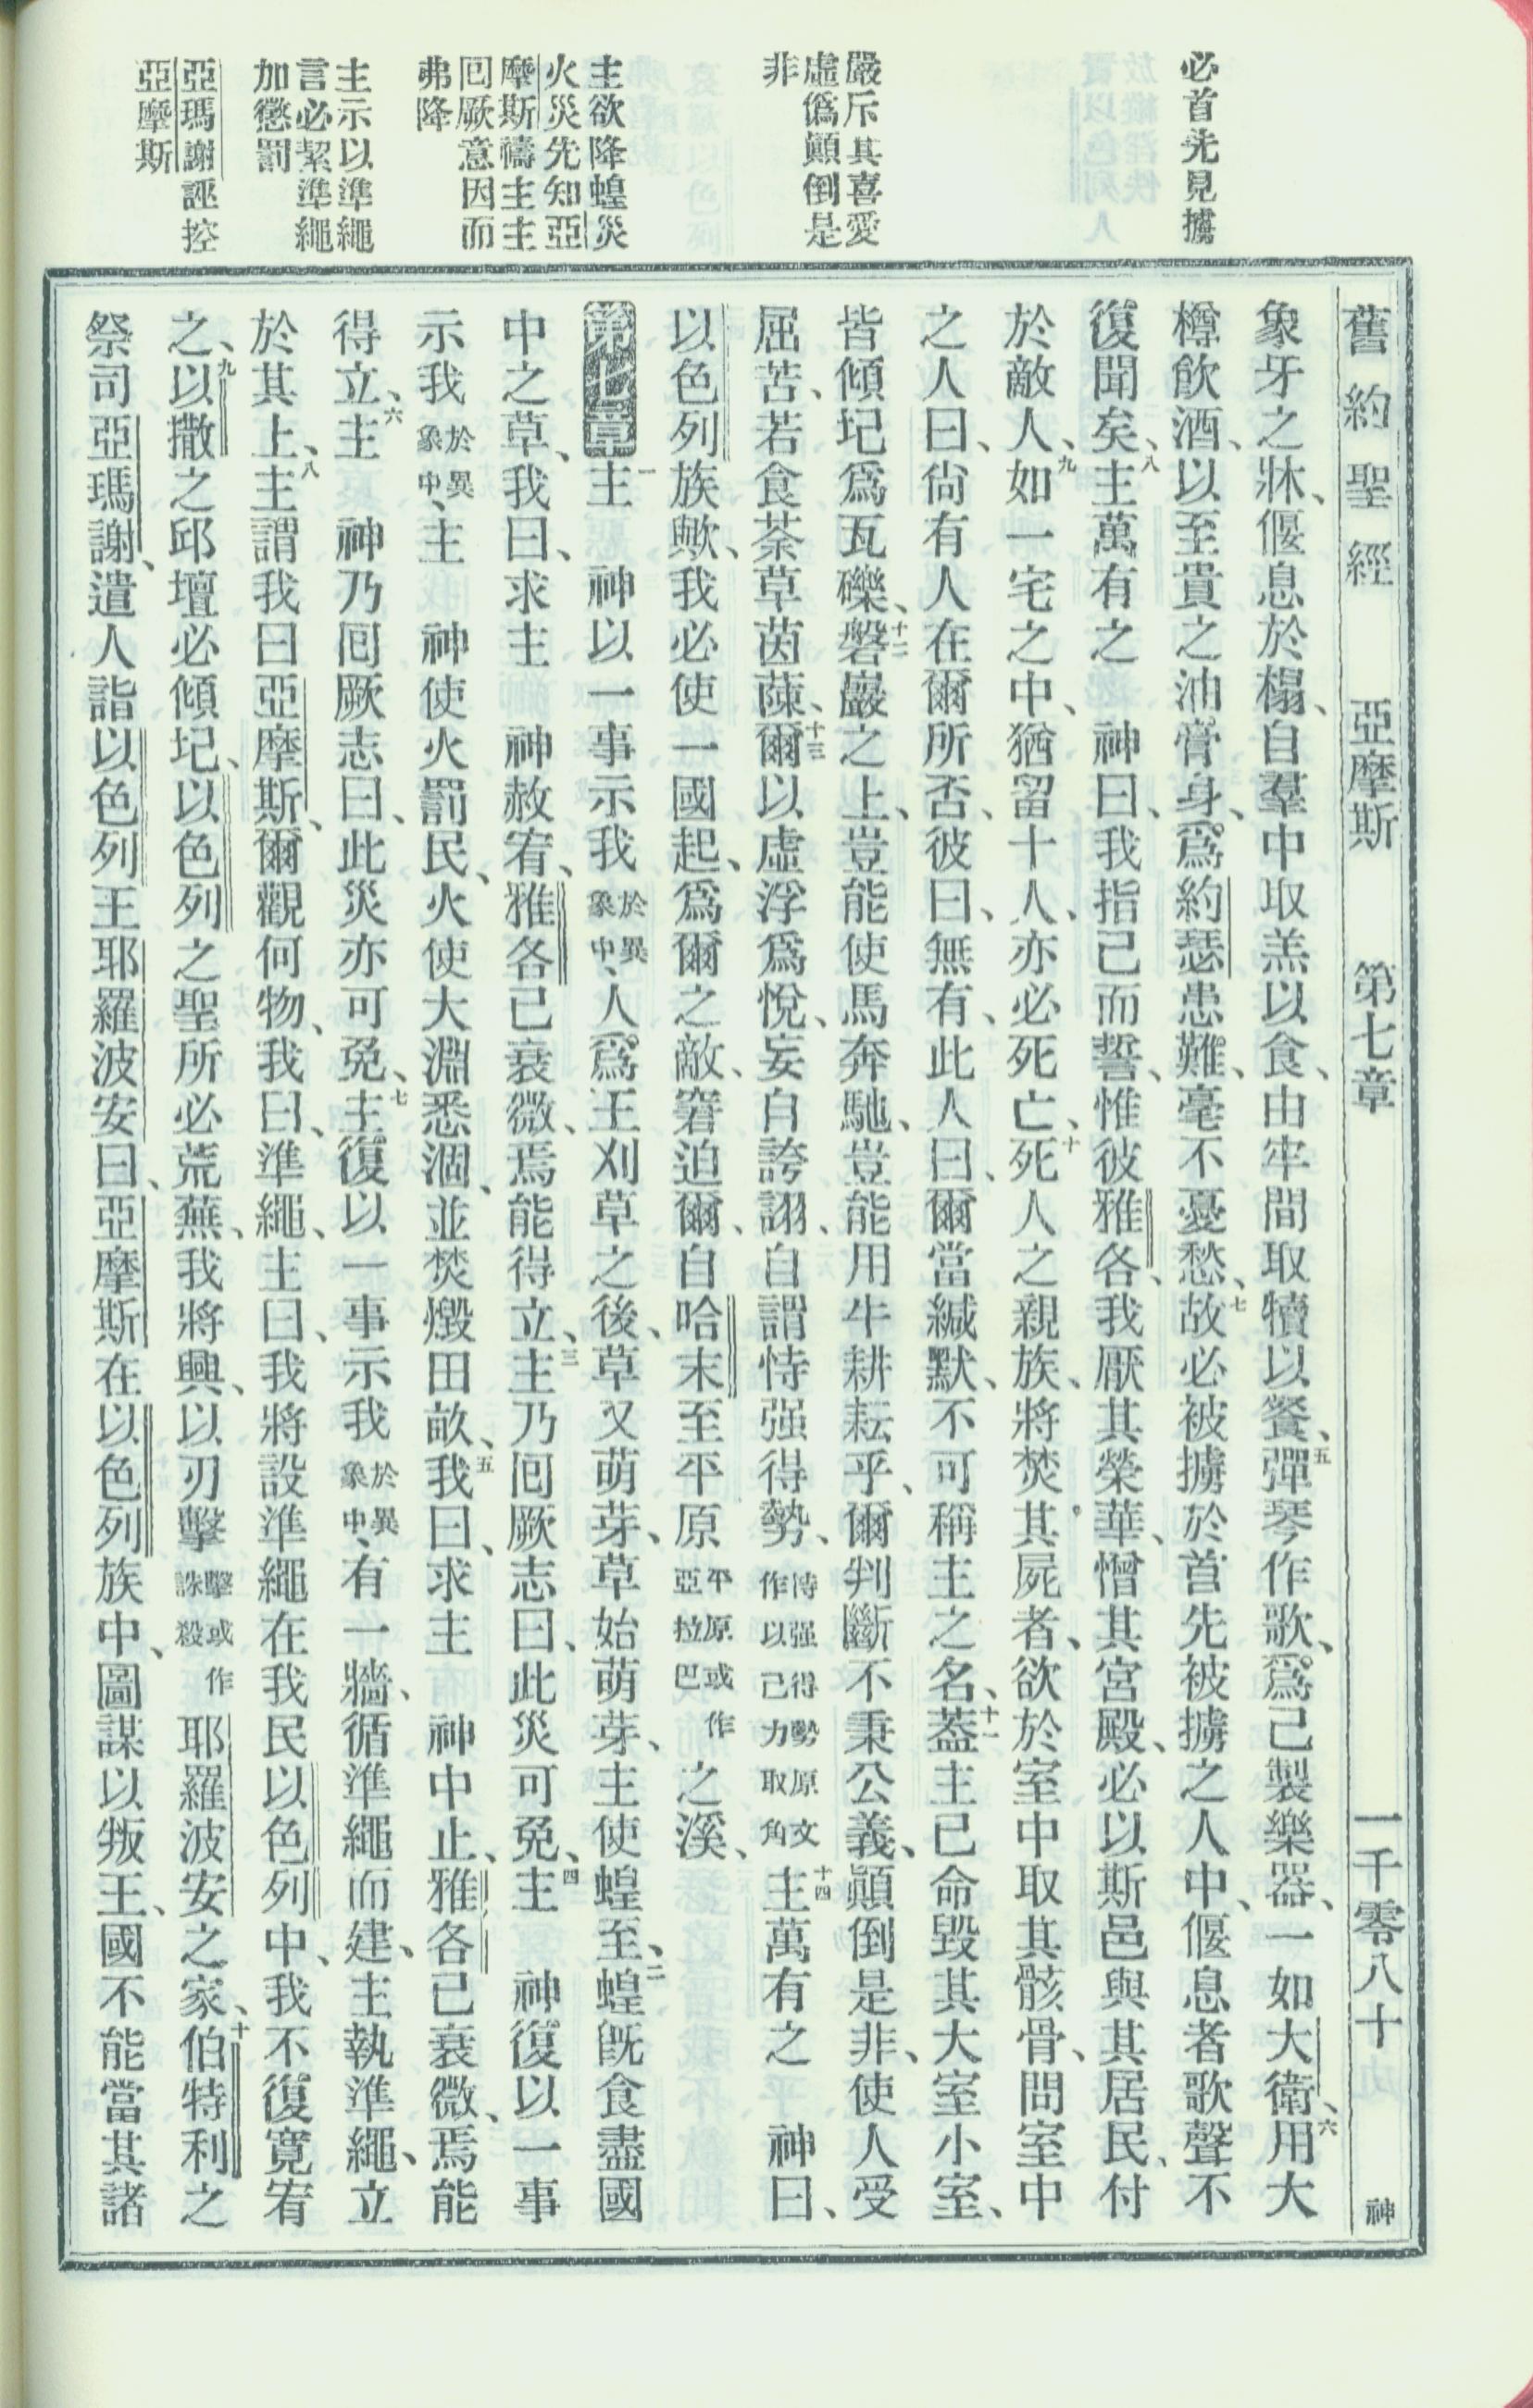 必首先見擄
嚴斥其喜愛
虛僞顚倒是
非
主欲降蝗災
火災先知亞
摩斯禱主主
回厥意因而
弗降
主示以準繩
言必絜準繩
加懲罰
亞瑪謝誣控
亞摩斯
舊約聖經 亞摩斯 第七章 一千零八十 神
象牙之牀、偃息於榻、自羣中取羔以食、由牢間取犢以餐、五彈琴作歌、爲己製樂器、一如大衛、六用大
樽飲酒、以至貴之油膏身、爲約瑟患難、毫不憂愁、七故必被擄於首先被擄之人中、偃息者歌聲不
復聞矣、八主萬有之 神曰、我指己而誓、惟彼雅各、我厭其榮華、憎其宮殿、必以斯邑與其居民、付
於敵人、九如一宅之中、猶留十人、亦必死亡、十死人之親族、將焚其屍者、欲於室中取其骸骨、問室中
之人曰、尙有人在爾所否、彼曰、無有、此人曰、爾當緘默、不可稱主之名、十一蓋主已命毀其大室小室、
皆傾圮爲瓦礫、十二磐巖之上、豈能使馬奔馳、豈能用牛耕耘乎、爾判斷不秉公義、顚倒是非、使人受
屈苦、若食荼草茵蔯、十三爾以虛浮爲悅、妄自誇詡、自謂恃强得勢、恃强得勢原文作以己力取角十四主萬有之 神曰、
以色列族歟、我必使一國起、爲爾之敵、窘迫爾、自哈末至平原平原或作亞拉巴之溪、
第七章 一主 神以一事示我於異象中、人爲王刈草之後、草又萌芽、草始萌芽、主使蝗至、二蝗旣食盡國
中之草、我曰、求主 神赦宥、雅各已衰微、焉能得立、三主乃回厥志曰、此災可免、四主 神復以一事
示我於異象中、主 神使火罰民、火使大淵悉涸、並焚燬田畝、五我曰、求主 神中止、雅各已衰微、焉能
得立、六主 神乃回厥志曰、此災亦可免、七主復以一事示我於異象中、有一牆、循準繩而建、主執準繩、立
於其上、八主謂我曰亞摩斯、爾觀何物、我曰、準繩、主曰、我將設準繩在我民以色列中、我不復寬宥
之、九以撒之邱壇必傾圮、以色列之聖所必荒蕪、我將興、以刃擊擊或作誅殺耶羅波安之家、十伯特利之
祭司亞瑪謝、遣人詣以色列王耶羅波安曰、亞摩斯在以色列族中、圖謀以叛王、國不能當其諸